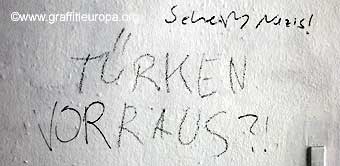 ©www.graffitieuropa.org
Scheiß Nazis!
TÜRKEN
VORRAUS?!